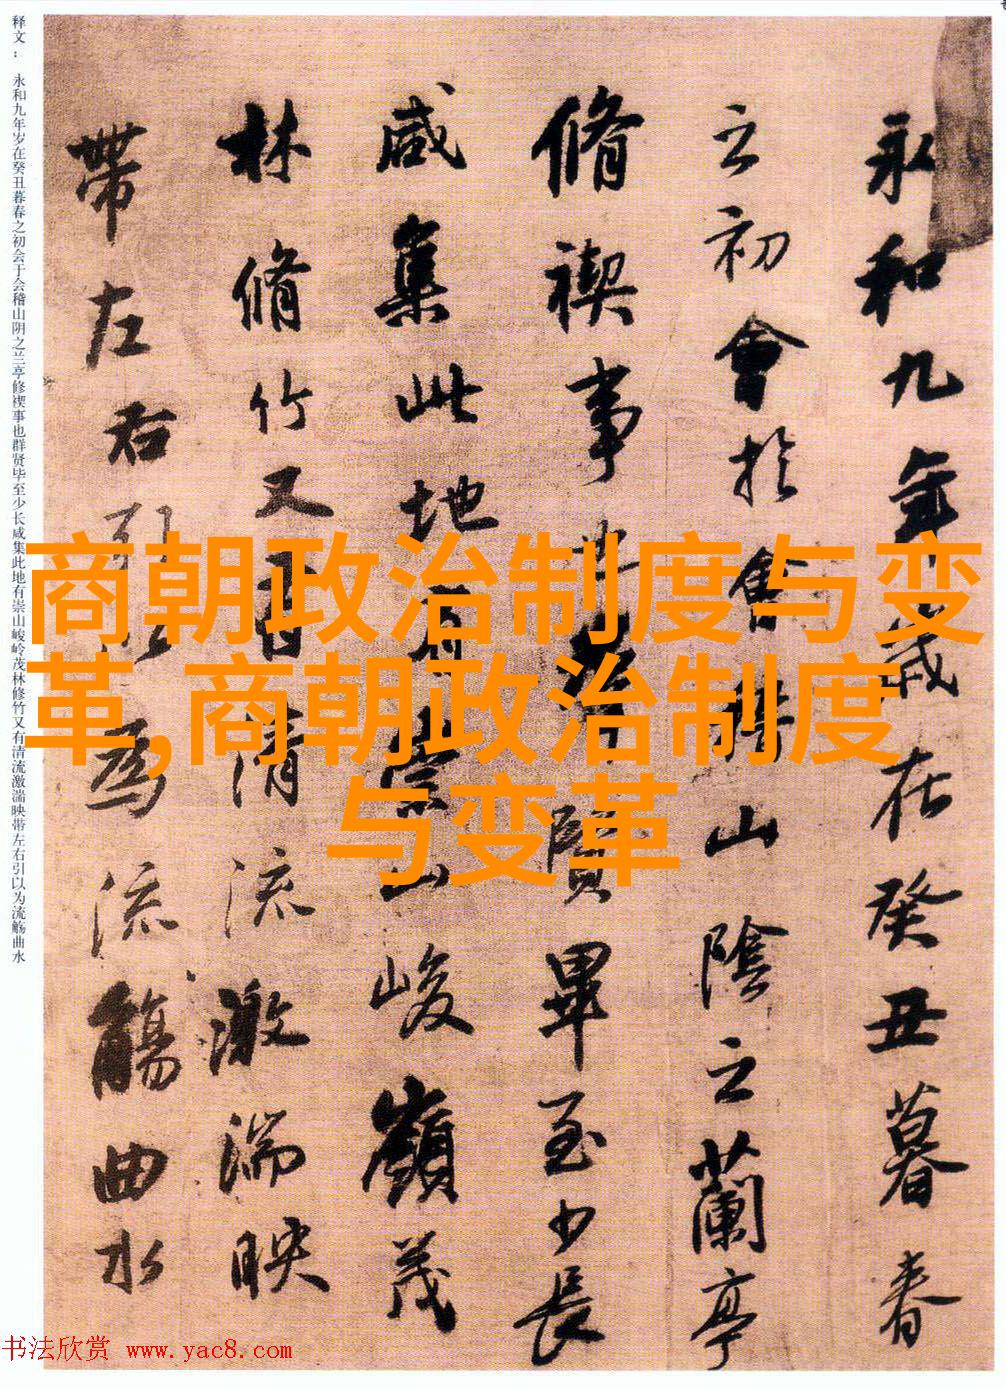 释文：永和九年岁在癸丑暮春之初会于会稽山阴之兰亭修禊事也群贤毕至少长咸集此地有崇山峻岭茂林修竹又有清流激湍映带左右引以为流觞曲水
永和九年歲在癸丑暮春
之初會於會稽山陰之蘭亭
脩禊事也群賢畢至少長
咸集此地有崇山峻嶺茂
林脩竹又有清流激湍映
帶左右引以為流觴曲水
商朝政治制度与变
革,商朝政治制度
与变革
书法欣赏 www.yac8.com